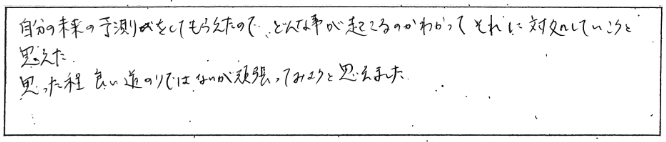 自分の未来の予測がをしてもらえたので、どんな事が起こるのかわかって それに対処していこうと
思えた。
思った程 良い道のりではないが頑張ってみようと思えました。